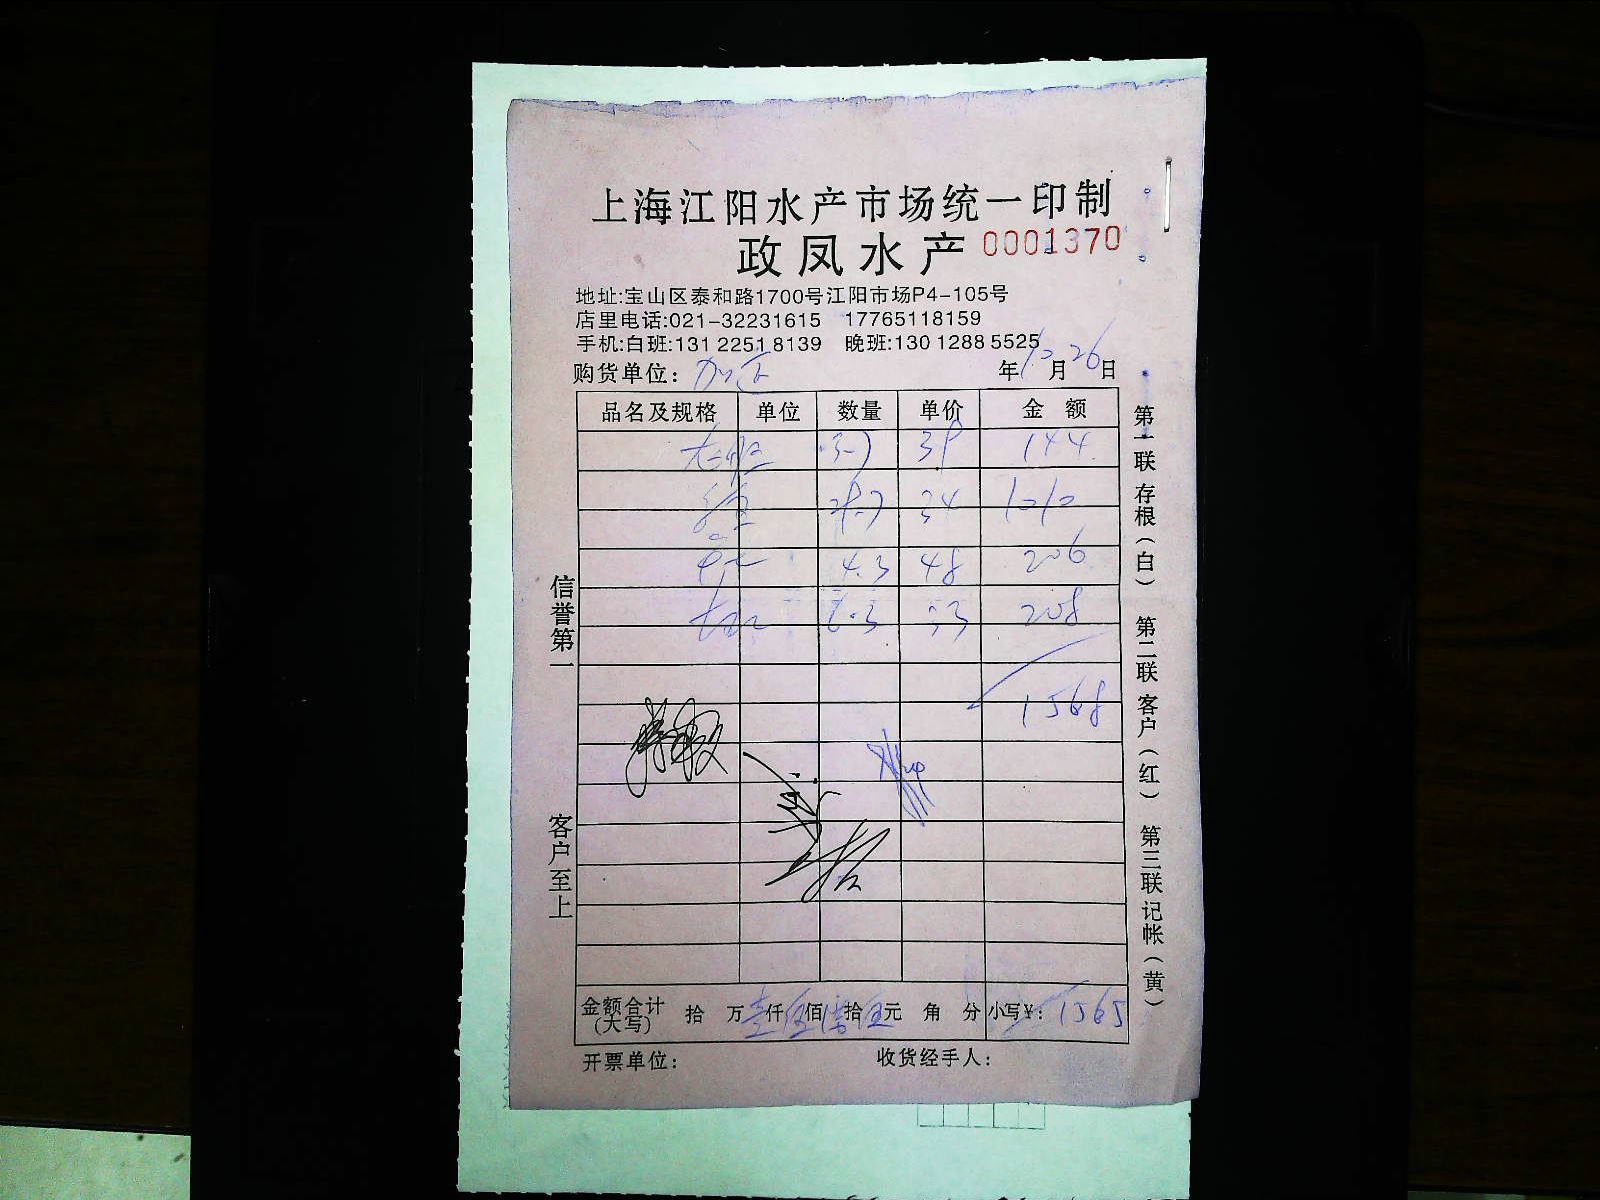 上海江阳水产市场统一印制
政凤水产 0001370
地址:宝山区泰和路1700号江阳市场P4-105号
店里电话:021-32231615 17765118159
手机:白班:131 2251 8139 晚班:130 1288 5525
购货单位: 年10月26日
品名及规格 单位 数量 单价 金额
3.7 39 144
29.7 34 1010
4.3 48 206
6.3 33 208
1568
金额合计(大写) 拾 万壹仟伍佰陆拾伍元 角 分 小写¥: 1565
开票单位: 收货经手人:
信誉第一
客户至上
第一联 存根(白) 第二联 客户(红) 第三联 记帐(黄)